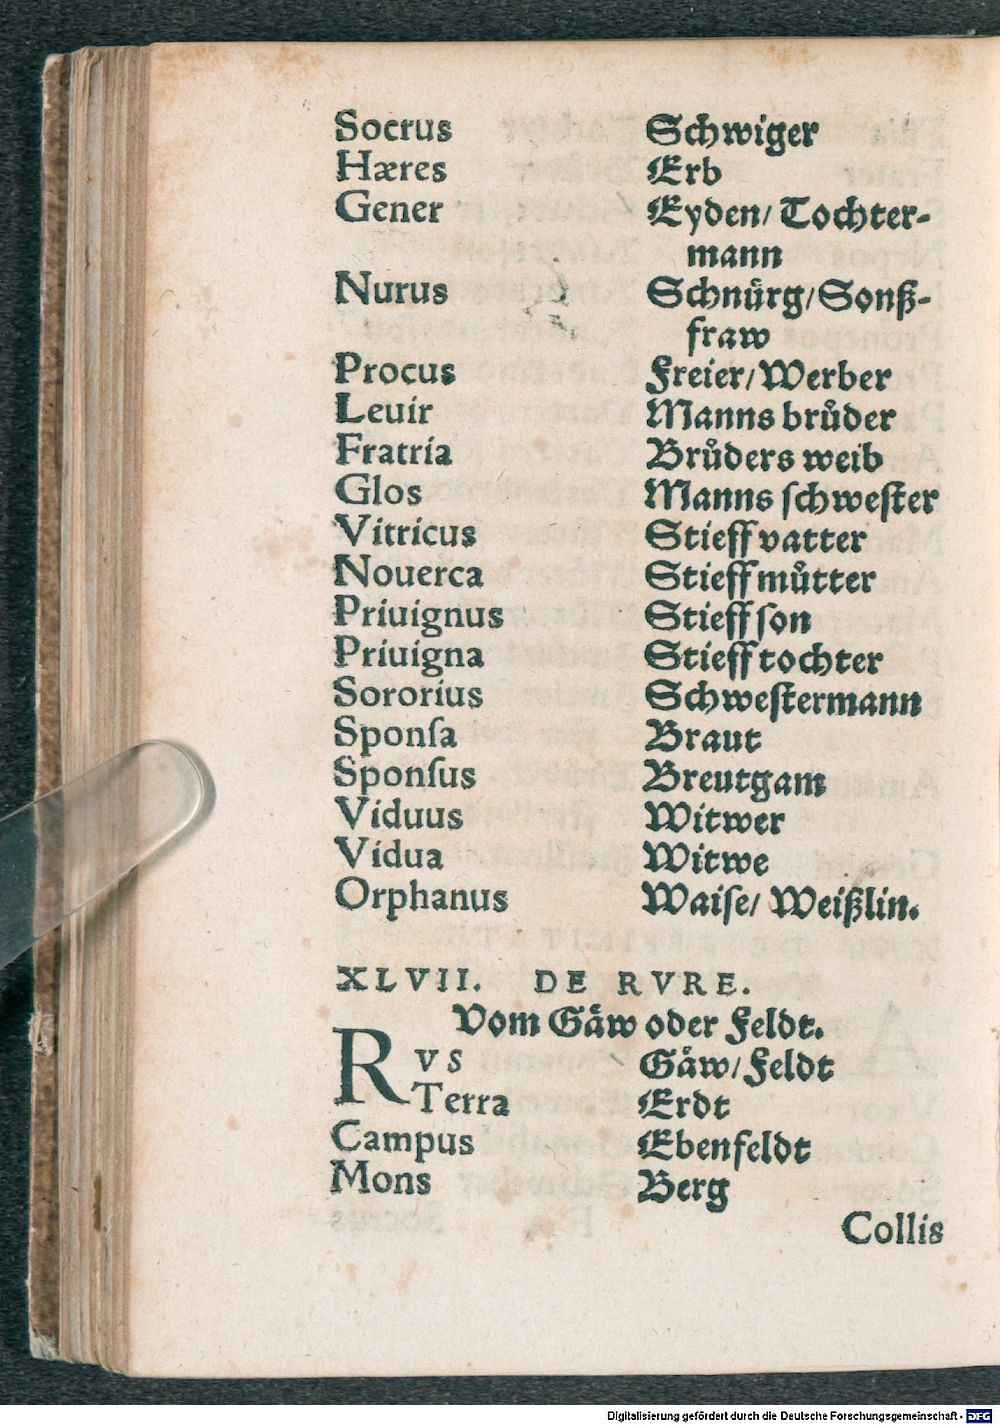 Socrus Schwiger
Hæres Erb
Gener Eyden/ Tochter-
mann
Nurus Schnuͤrg/Sonß-
fraw
Procus Freier/Werber
Leuir Manns bruͦder
Fratria Bruͦders weib
Glos Manns ſchweſter
Vitricus Stieff vatter
Nouerca Stieff muͦtter
Priuignus Stieff ſon
Priuigna Stieff tochter
Sororius Schweſtermann
Sponſa Braut
Sponſus Breutgam
Viduus Witwer
Vidua Witwe
Orphanus Waiſe/ Weißlin.
XLVII. DE RVRE.
Vom Gaͤw oder Feldt.
RVS Gaͤw/Feldt
Terra Erdt
Campus Ebenfeldt
Mons Berg
Collis
Digitalisierung gefördert durch die Deutsche Forschungsgemeinschaft - DFG